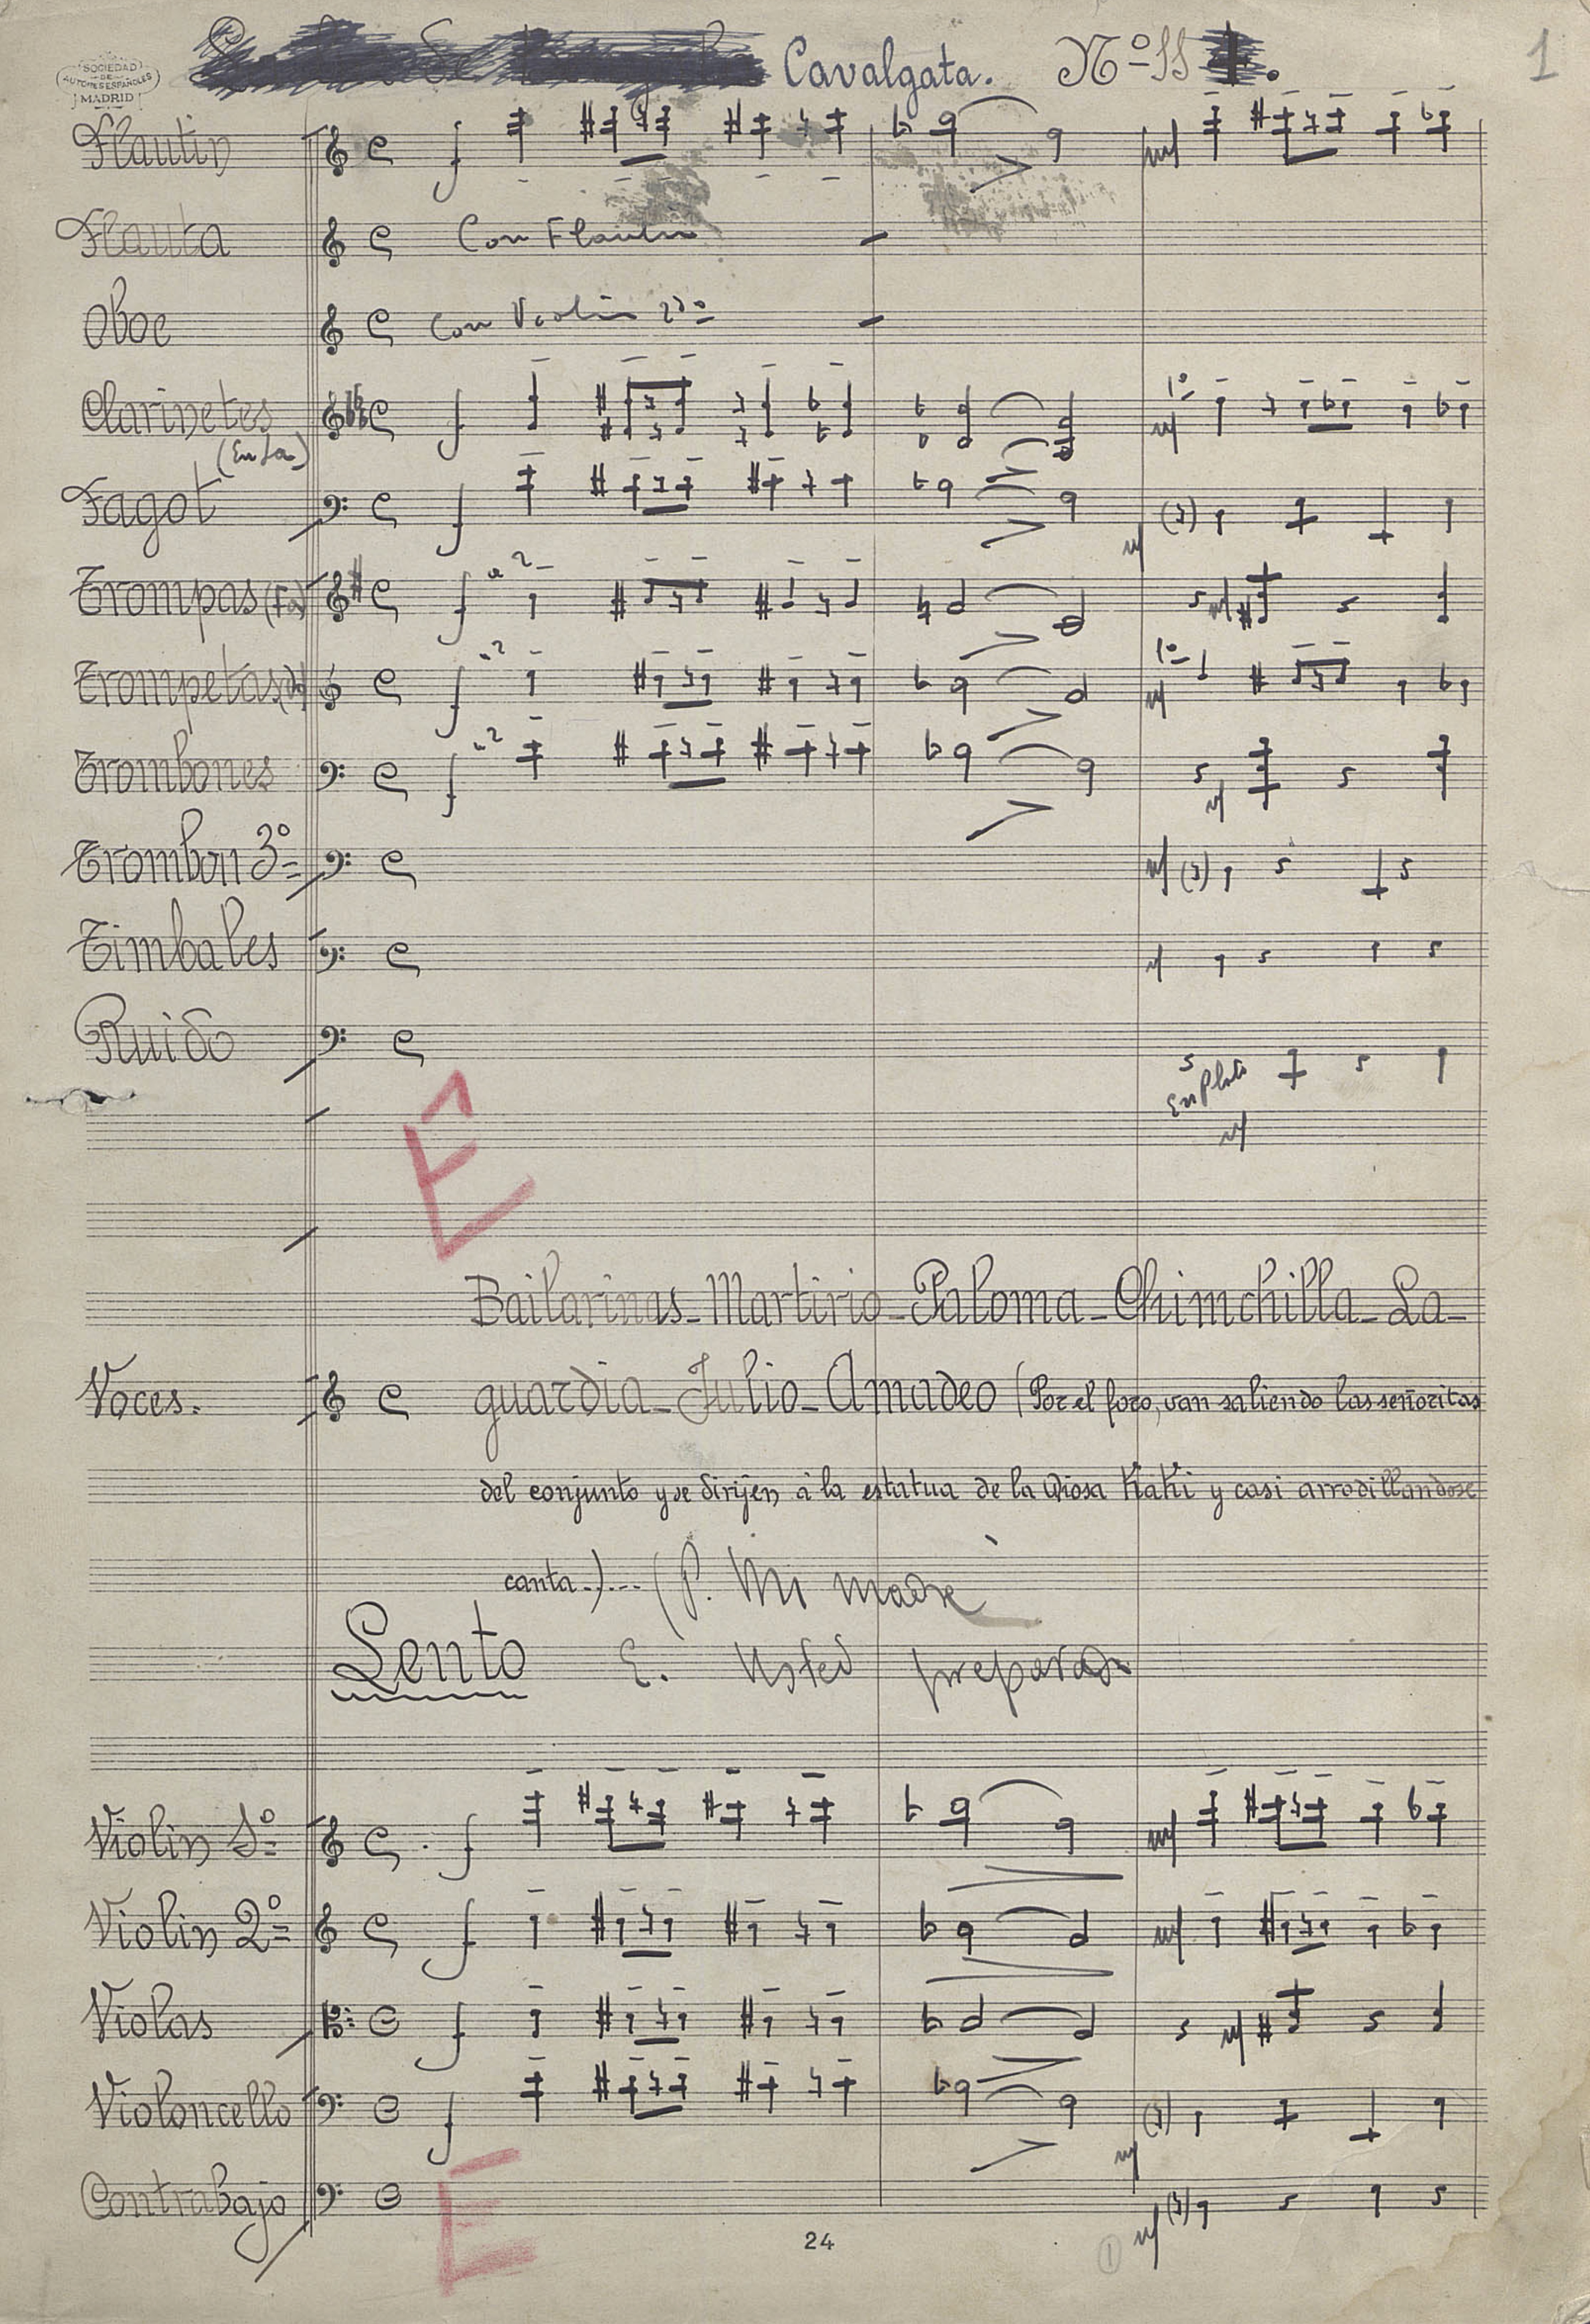 Cavalgata. Nº 11
1
SOCIEDAD
DE
AUTORES ESPAÑOLES
MADRID
Flautin
Flauta Con Flautin
Oboe Con Violin 2º
Clarinetes
(En La)
1º
Fagot
Trompas (Fa) a 2
Trompetas (Do) a 2 1º
Trombones a 2
Trombon 3º
Timbales
Ruido
En Plato
E
Bailarinas - Martirio - Paloma - Chimchilla - La-
Voces. guardia - Julio - Amadeo (Por el foro, van saliendo las señoritas
del conjunto y se dirijen à la estatua de la Diosa Kaki y casi arrodillandose
canta..).... (P. Mi madre
Lento E. Usted preparar
Violin 1º
Violin 2º
Violas
Violoncello
Contrabajo
E
24
1